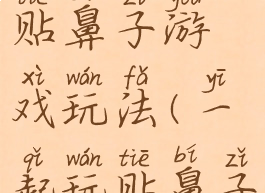 tiē bí zǐ yóu
贴鼻子游
xì wán fǎ yī
戏玩法(一
qǐ wán tiē bí zǐ
起玩贴鼻子